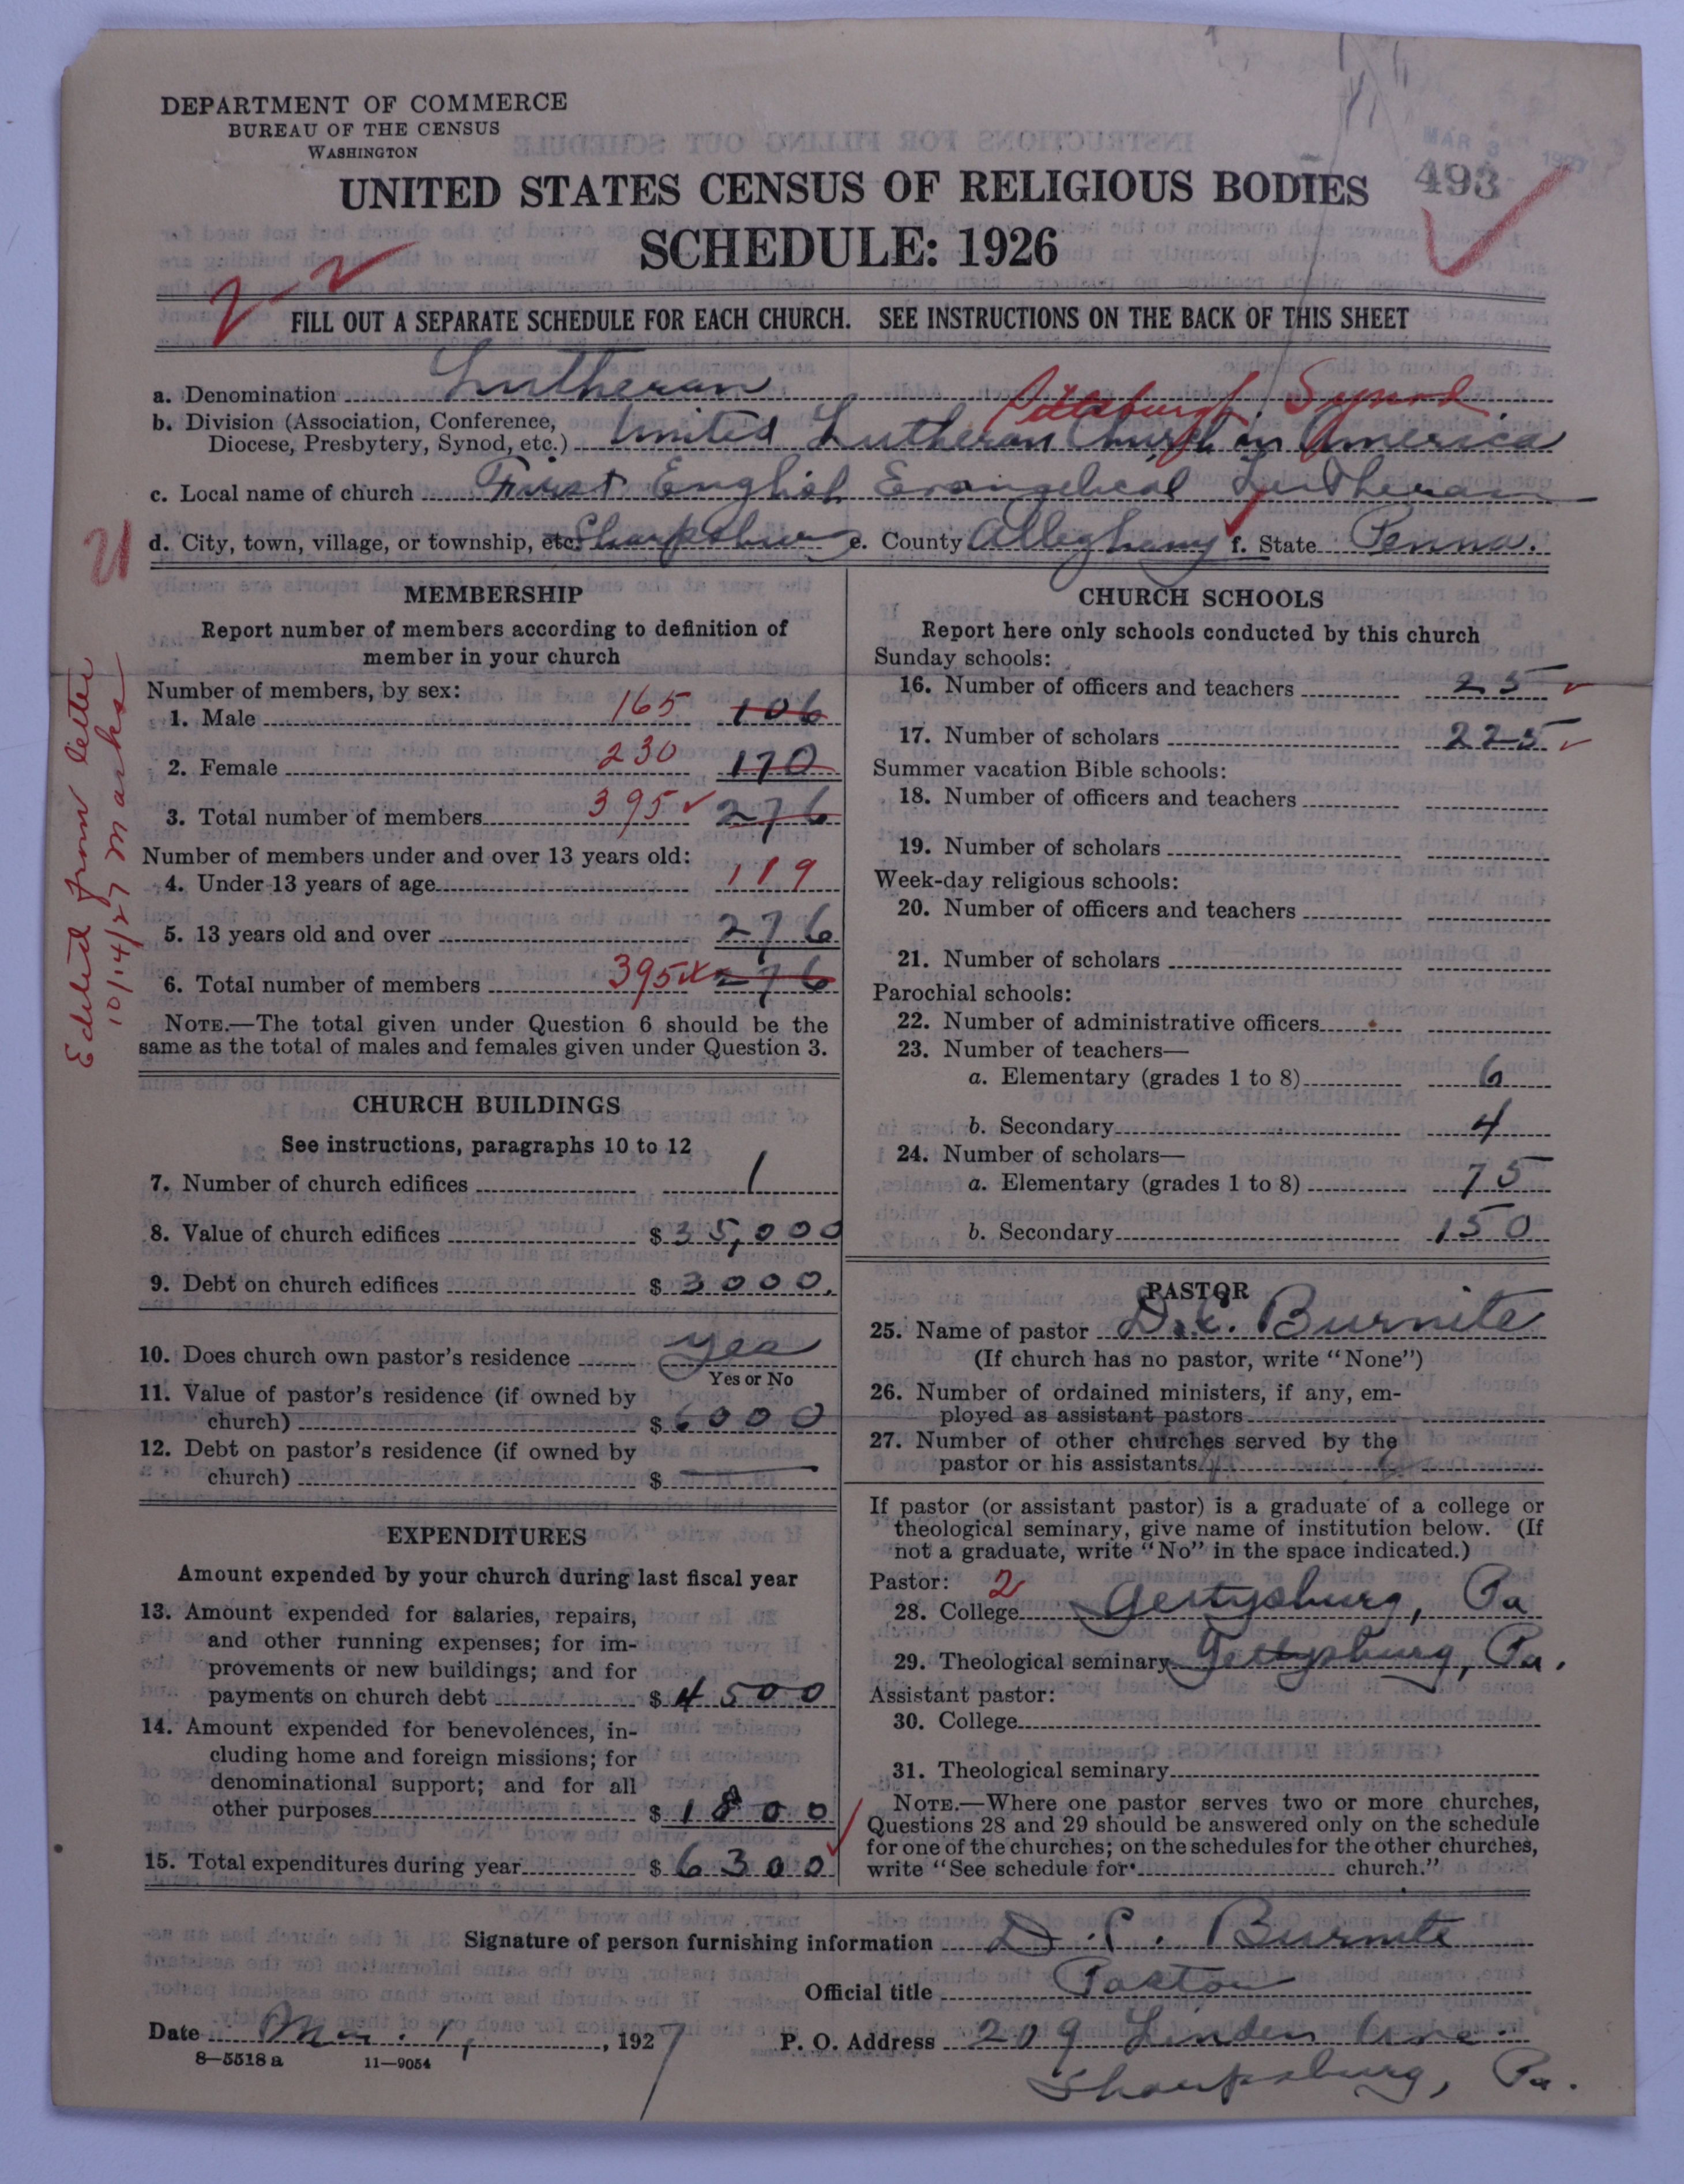 DEPARTMENT OF COMMERCE
BUREAU OF THE CENSUS
WASHINGTON
MAR 3 1927
493
UNITED STATES CENSUS OF RELIGIOUS BODIES
SCHEDULE: 1926
FILL OUT A SEPARATE SCHEDULE FOR EACH CHURCH. SEE INSTRUCTIONS ON THE BACK OF THIS SHEET
a. Denomination Lutheran
Pittsburgh Synod.
b. Division (Association, Conference,
Diocese, Presbytery, Synod, etc.) United Lutheran Church in America
c. Local name of church First English Evangelical Lutheran
d. City, town, village, or township, etc. Sharpsburg e. County Allegheny f. State Penna.
Edited from letter
10/14/27 Marks
MEMBERSHIP
Report number of members according to definition of
member in your church
Number of members, by sex:
1. Male 165 106
2. Female 230 170
3. Total number of members 395 276
Number of members under and over 13 years old:
4. Under 13 years of age 119
5. 13 years old and over 276
6. Total number of members 395 276
NOTE.—The total given under Question 6 should be the
same as the total of males and females given under Question 3.
CHURCH BUILDINGS
See instructions, paragraphs 10 to 12
7. Number of church edifices 1
8. Value of church edifices $35,000
9. Debt on church edifices $3000.
10. Does church own pastor's residence Yes
Yes or No
11. Value of pastor's residence (if owned by
church) $6000
12. Debt on pastor's residence (if owned by
church) $ —
EXPENDITURES
Amount expended by your church during last fiscal year
13. Amount expended for salaries, repairs,
and other running expenses; for im-
provements or new buildings; and for
payments on church debt $4500
14. Amount expended for benevolences, in-
cluding home and foreign missions; for
denominational support; and for all
other purposes $1800
15. Total expenditures during year $6300
CHURCH SCHOOLS
Report here only schools conducted by this church
Sunday schools:
16. Number of officers and teachers 25
17. Number of scholars 225
Summer vacation Bible schools:
18. Number of officers and teachers
19. Number of scholars
Week-day religious schools:
20. Number of officers and teachers
21. Number of scholars
Parochial schools:
22. Number of administrative officers
23. Number of teachers—
a. Elementary (grades 1 to 8) 6
b. Secondary 4
24. Number of scholars—
a. Elementary (grades 1 to 8) 75
b. Secondary 150
PASTOR
25. Name of pastor D. C. Burnite
(If church has no pastor, write "None")
26. Number of ordained ministers, if any, em-
ployed as assistant pastors
27. Number of other churches served by the
pastor or his assistants
If pastor (or assistant pastor) is a graduate of a college or
theological seminary, give name of institution below. (If
not a graduate, write "No" in the space indicated.)
Pastor: 2
28. College Gettysburg, Pa
29. Theological seminary Gettysburg, Pa.
Assistant pastor:
30. College
31. Theological seminary
NOTE.—Where one pastor serves two or more churches,
Questions 28 and 29 should be answered only on the schedule
for one of the churches; on the schedules for the other churches,
write "See schedule for church."
Signature of person furnishing information D. C. Burnite
Official title Pastor
Date Mar. 1, 1927 P. O. Address 209 Linden Ave.
8—5518 a 11—9054
Sharpsburg, Pa.